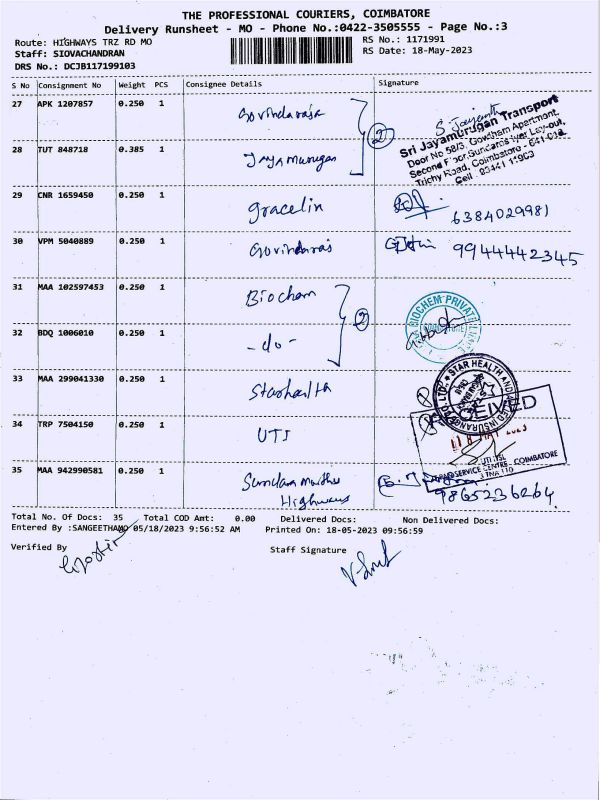 THE PROFESSIONAL COURIERS, COIMBATORE
Delivery Runsheet - MO - Phone No.:0422-3505555 - Page No.:3
Route: HIGHWAYS TRZ RD MO
RS No.: 1171991
Staff: SIOVACHANDRAN
RS Date: 18-May-2023
DRS No.: DCJB117199103
S No Consignment No Weight PCS Consignee Details Signature
27 APK 1207857 0.250 1 Govindaraja
S. Jayanth
Sri Jayamurugan Transport
Door No 58/3, Gowtham Apartment,
Second Floor, Sundaros Iyer Lay-out,
Trichy Road, Coimbatore - 641 018
Cell : 93441 11903
28 TUT 848718 0.385 1 Jayamurugan
2
29 CNR 1659450 0.250 1 Gracelin 6384029981
30 VPM 5040889 0.250 1 Govindaraj 99444442345
31 MAA 102597453 0.250 1 Biochem
BIOCHEM PRIVATE
32 BDQ 1006010 0.250 1 -do-
2
33 MAA 299041330 0.250 1 Starhealth
STAR HEALTH AND
34 TRP 7504150 0.250 1 UTI
COIMBATORE
35 MAA 942990581 0.250 1 Sundaramurthy
Highways
9865236264
Total No. Of Docs: 35 Total COD Amt: 0.00 Delivered Docs: Non Delivered Docs:
Entered By :SANGEETHAMO 05/18/2023 9:56:52 AM Printed On: 18-05-2023 09:56:59
Verified By
Staff Signature